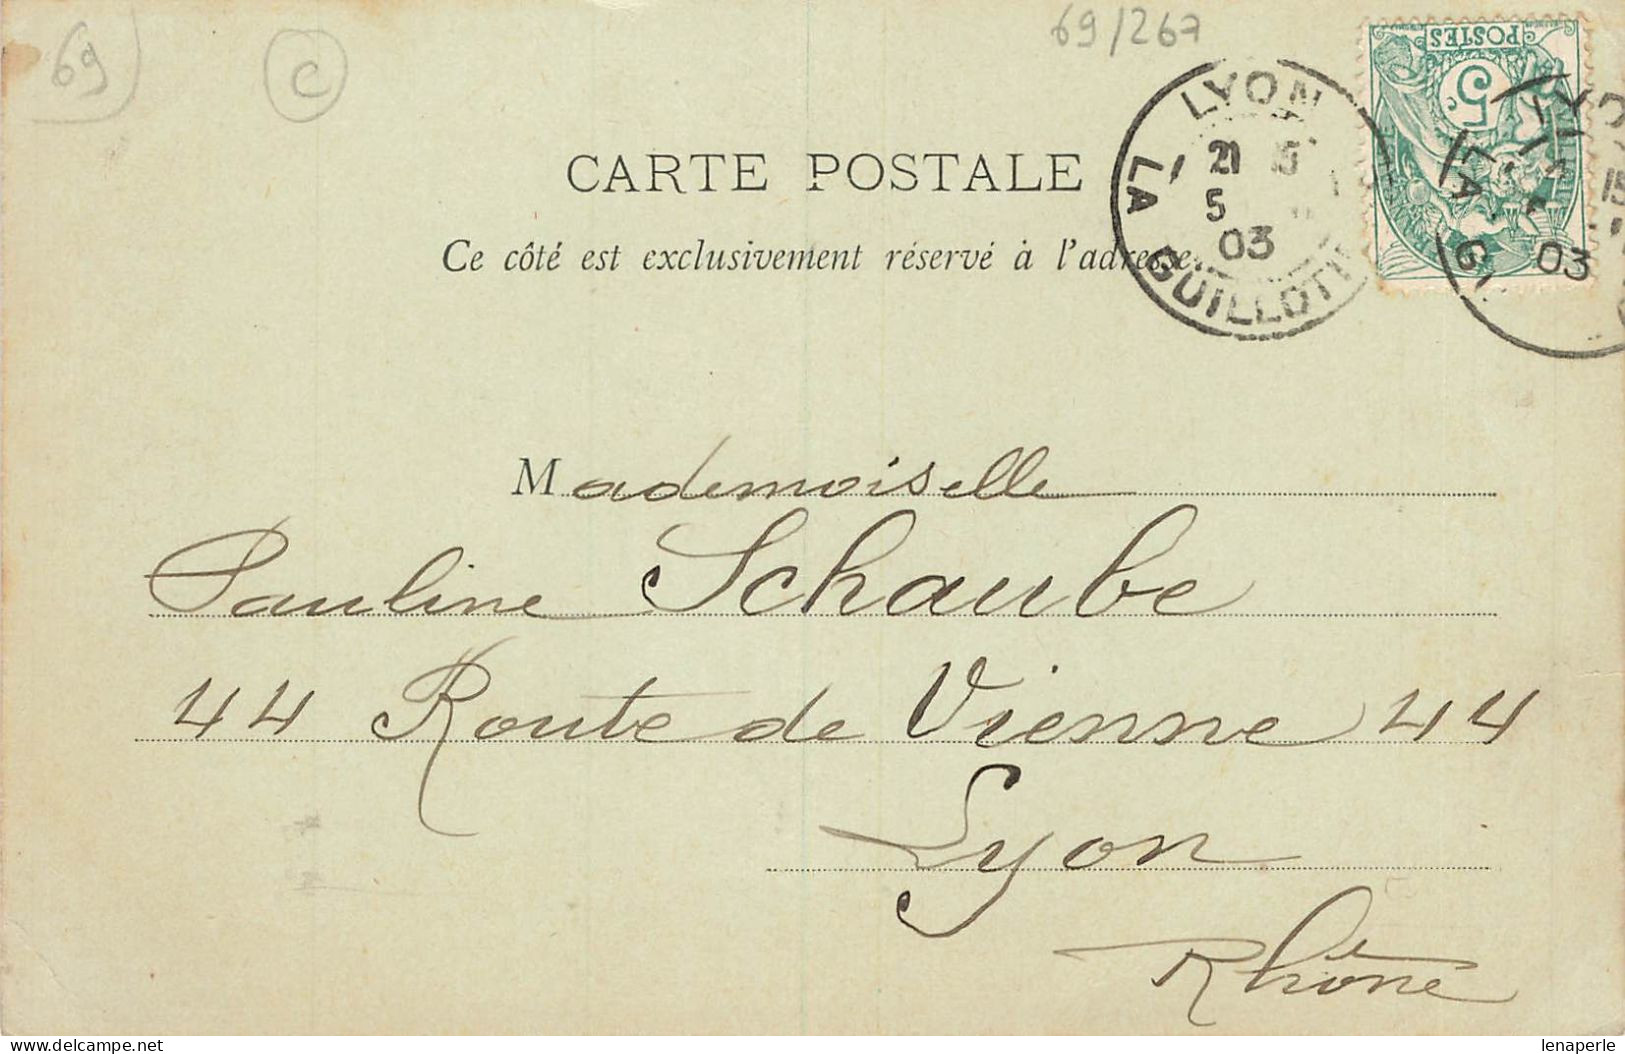 69
C
69/267
POSTES
5c
LYON
21
5
03
LA GUILLOTI
LA GU
03
CARTE POSTALE
Ce côté est exclusivement réservé à l'adresse.
Mademoiselle
Pauline Schaube
44 Route de Vienne 44
Lyon
Rhône
delcampe.net
lenaperle